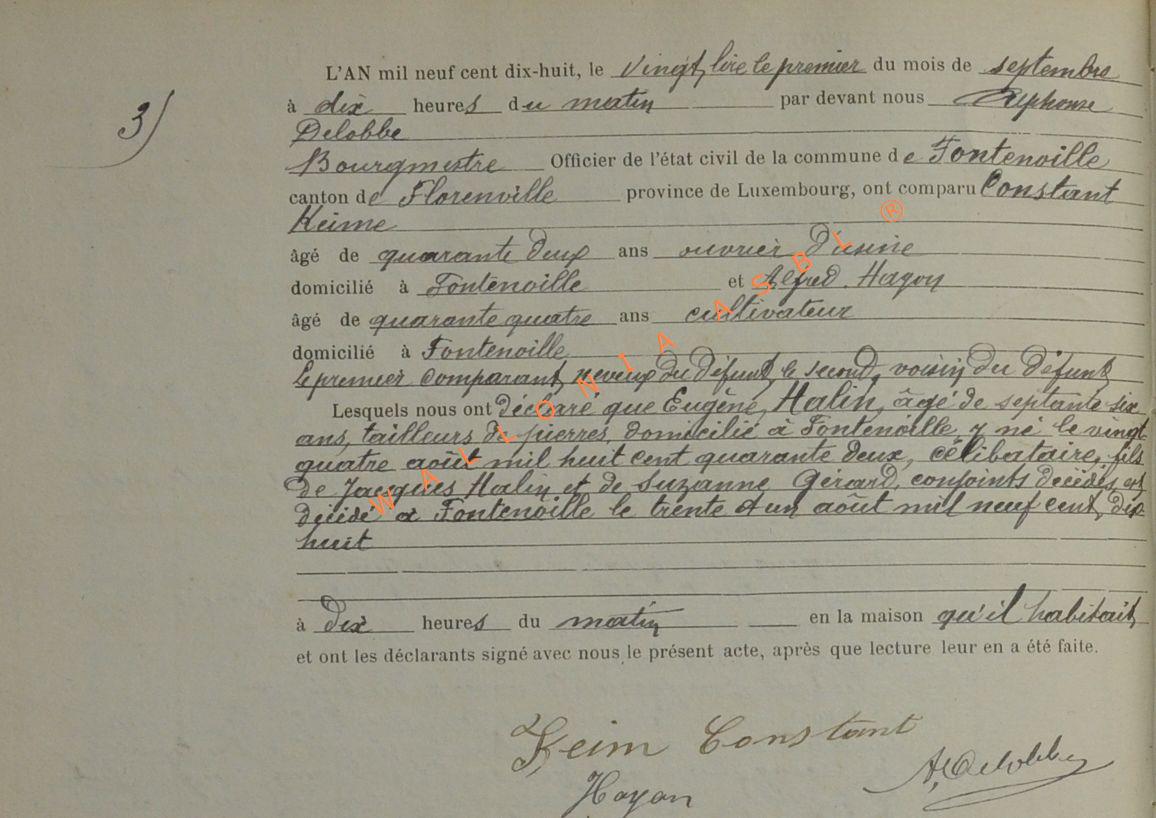 L'AN mil neuf cent dix-huit, le vingt, lire le premier du mois de septembre
3)
à dix heures du matin par devant nous Alphonse
Delobbe
Bourgmestre Officier de l'état civil de la commune de Fontenoille
canton de Florenville province de Luxembourg, ont comparu Constant
Keime
âgé de quarante deux ans ouvrier d'usine
domicilié à Fontenoille et Alfred Hayon
âgé de quarante quatre ans cultivateur
domicilié à Fontenoille
le premier comparant, neveux du défunt, le second, voisin du défunt
Lesquels nous ont déclaré que Eugène, Halin, âgé de septante six
ans, tailleurs de pierres, domicilié à Fontenoille, y né le vingt
quatre août mil huit cent quarante deux, célibataire, fils
de Jacques Halin et de Suzanne Gérard, conjoints décédés, est
décédé à Fontenoille le trente et un août mil neuf cent, dix-
huit
à dix heures du matin en la maison qu'il habitait,
et ont les déclarants signé avec nous le présent acte, après que lecture leur en a été faite.
Keim Constant
Hayon
A. Delobbe
WALLONIA ASBL ®